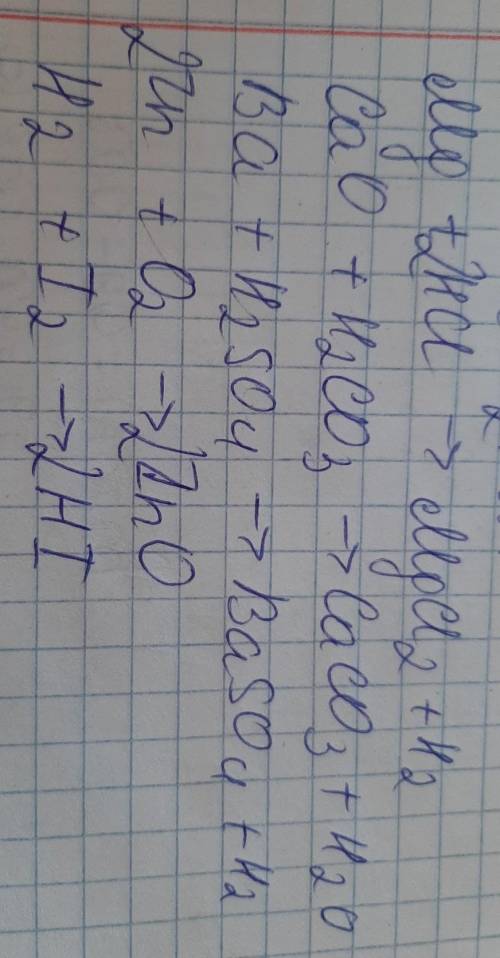 Mg + 2HCl → MgCl2 + H2
CaO + H2CO3 → CaCO3 + H2O
Ba + H2SO4 → BaSO4 + H2
2Zn + O2 → 2ZnO
H2 + I2 → 2HI